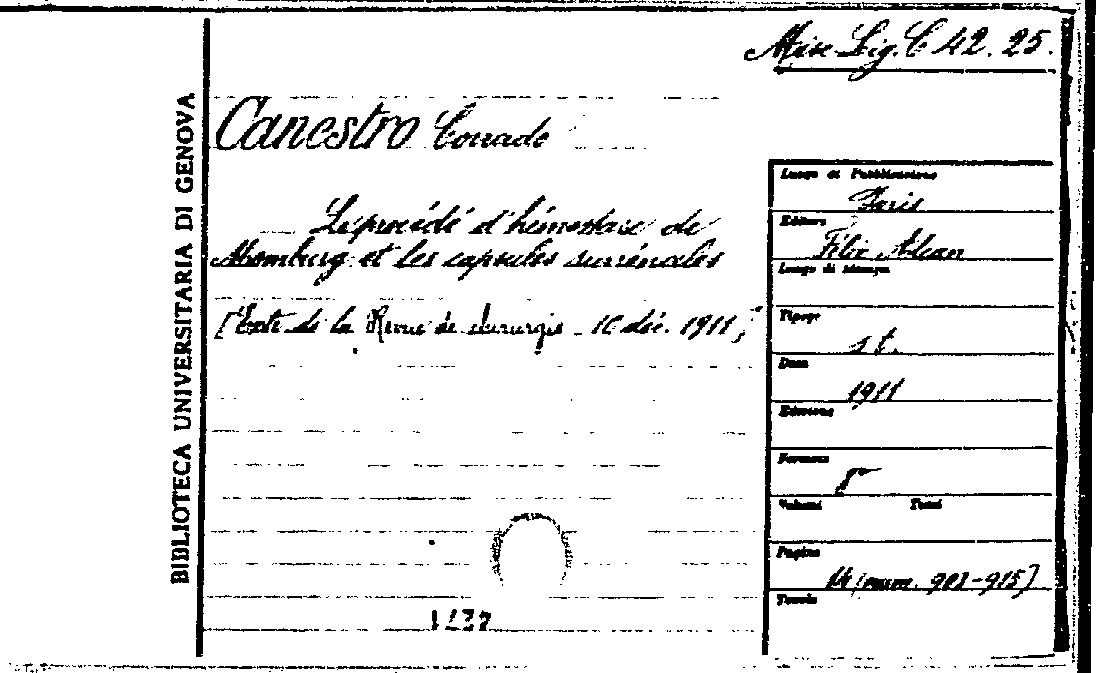 Misc. Lig. C 42. 25.
BIBLIOTECA UNIVERSITARIA DI GENOVA
Canestro Corrado
Le procédé d'hémostase de
Momburg et les capsules surrénales
[Extr. de la Revue de chirurgie - 10 déc. 1911]
Luogo di Pubblicazione
Paris
Editore
Félix Alcan
Luogo di stampa
Tipogr.
s. t.
Data
1911
Edizione
Formato
8º
Volumi Tomi
Pagine
14 (num. 902-915)
Tavole